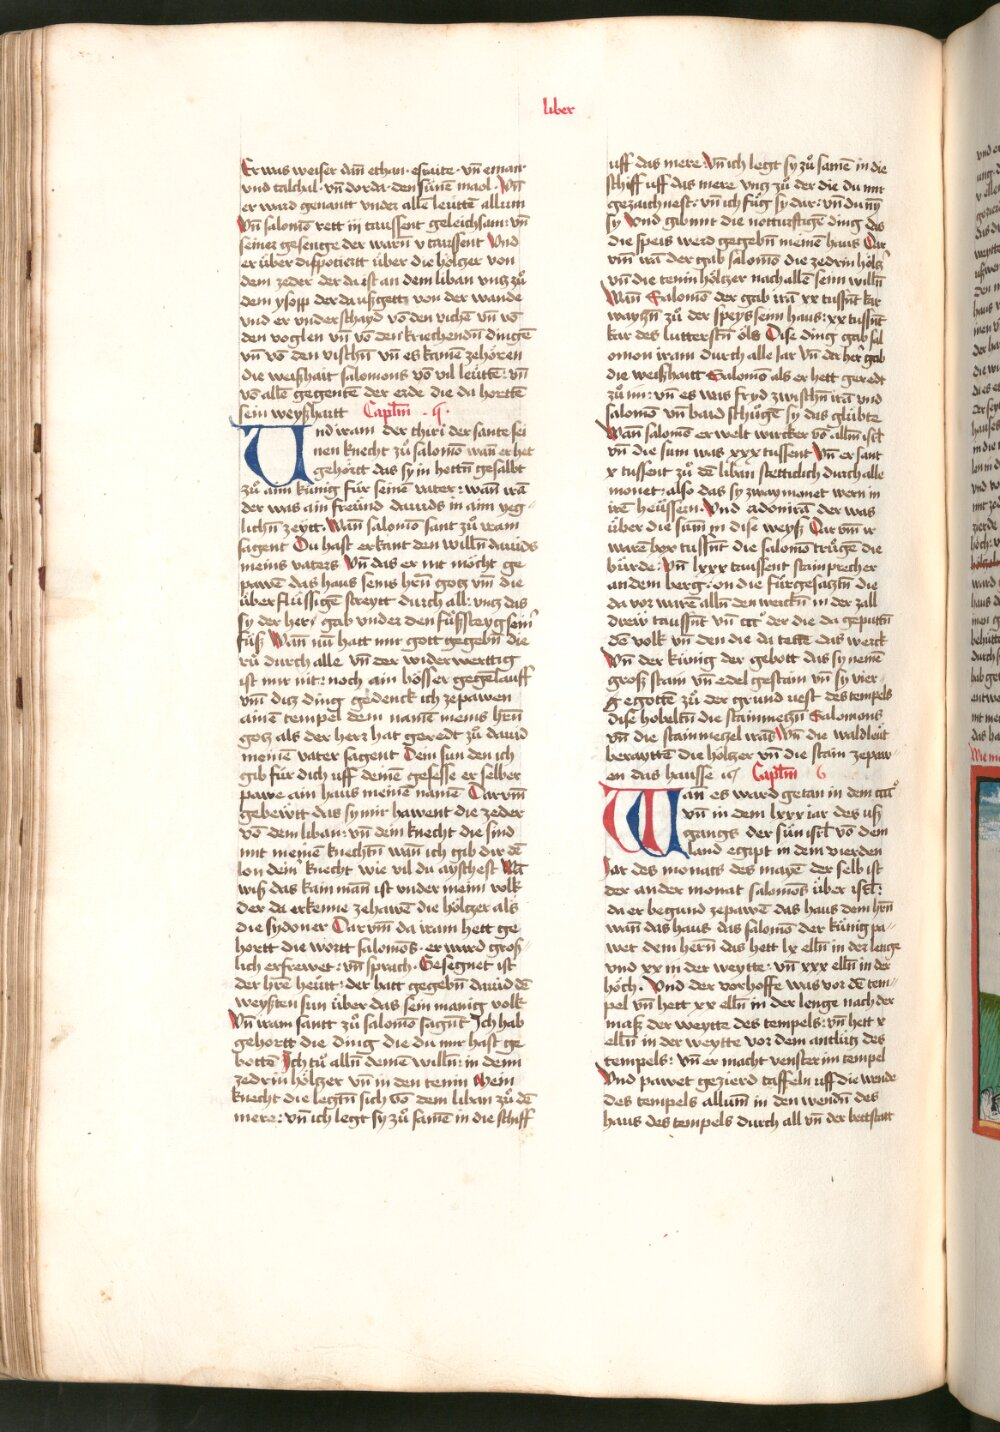 liber
Er was weiser dañ ethan · esraite · vñ eman
vnd calchal · vñ dorda · den sünē maol · Vñ
er ward genantt vnder allē leüttē allum
Vñ salomō rett iij taussent geleichsam : vñ
seiner gesenge der warñ v taussent Vnd
er über dispociertt über die höltzer von
dem zeder der da ist an dem liban vntz zů
dem ysopp der da ußgett von der wande
vnd er vnderschayd vō den vichē vñ vō
den voglen vñ vō den kriechendñ dingē
vñ vō den vischñ vñ es kamē zehören
die weißhait salomons vō vil leüttē : vñ
vō allē gegentē der erde die da horttē
sein weyßhaitt Capľm · 5 ·
Und iram der chiri der sante sei
nen knecht zů salomō wañ er het
gehörtt das sy in hettñ gesalbt
zů aim künig für seinē vater : wañ irā
der was ain freünd dauids in aim yeg
lichñ zeytt · Wañ salomō sant zů iram
sagent Du hast erkant den willñ dauids
meins vaters Vñ das er nit möcht ge
pawē das haus seins herñ gotz vm̄ die
überflüssigē streytt durch all : vntz das
sy der herr gab vnder den fůßsteyg seinr
füß Wañ nū hatt mir gott gegebñ die
rů durch alle vñ der widerwerttig
ist mir nit : noch ain bösser gegēlauff
vm̄ ditz ding gedenck ich zepawen
ainē tempel dem namē meins hrñ
gotz als der herr hat geredt zů dauid
meinē vater sagent Dein sun den ich
gib für dich uff deinē gesesse er selber
pawe ain haus meinē namē Darvm̄
gebewtt das sy mir hawent die zeder
vō dem liban : vñ dein knecht die sind
mit meinē knechtñ wañ ich gib dir dē
lon deinr knecht wie vil du ayschest Wā
wiß das kain mañ ist vnder meim volk
der da erkenne zehawē die höltzer als
die sydoner Darvm̄ da iram hett ge
hortt die wortt salomōs · er ward groß
lich erfrewet : vñ sprach · Gesegnet ist
der hrē heütt : der hatt gegebñ dauid dē
weyßten sun über das sein manig volk
Vñ iram santt zů salomō sagñt Ich hab
gehortt die ding die du mir hast ge
bottē Ich tů allñ deinē willñ : in denn
zedrin höltzer vñ in den tenin Mein
knecht die legtñ sich vō dem liban zů dē
mere : vñ ich legt sy zů samē in die schiff
uff das mere : Vñ ich legt sy zů samē in die
schiff uff das mere vntz zů der die du mir
gezaichnest : vñ ich füg sy dar : vñ du nÿ
sy Vnd gib mit die notturftigē ding das
die speis werd gegebñ meinē haus Dar
vm̄ irā der gab salomō die zedrin höltz
vñ die tenin höltzer nach allē seim willñ
Wañ Salomō der gab irā xx tussñt kar
waytzñ zů der speys seim haus : xx tussñt
kar des lutterstñ öls Dise ding gab sal
omon iram durch alle iar Vñ der herr gab
die weißhaitt Salomō als er hett geredt
zů im : vñ es was fryd zwischñ irā vnd
salomō vñ baid schlůgē sy das glübte
Wañ salomō er welt wircker vō allm̄ isrł
vñ die sum was xxx tussent Vñ er sant
x tussent zů dē liban stetticlich durch alle
monet : also das sy zway monet wern in
irē heüssern : Vnd adonirā der was
über die sum̄ in dise weyß Darvm̄ ir
warē lxx tussñt die salomō trůgē die
bürde : Vñ lxxx taussent stainprecher
an dem berg : on die fürgesatztñ die
da vor warē allñ den werckñ in der zall
dreü taussñt vñ ccc der die da geputtñ
dē volk vñ den die da tettē das werck
Vñ der künig der gebott das sy nemē
groß stain vñ edel gestain vñ sy vier
g egottē zů der grund vest des tempels
dise hobeltñ die stainmetzñ Salomons
vñ die stainmetzel irās Vñ die waldleüt
berayttē die höltzer vñ die stain zepaw
en das hausse Capľm 6
Wañ es ward getan in dem
vñ in dem lxxx iar des uß
gangs der sün isrł vō dem
land egipt in dem vierden
Jar des monats des mayē der selb ist
der ander monat salomōs über isrł :
da er begund zepawē das haus dem hrñ
wañ das haus das salomō der künig pa
wet dem herñ das hett lx ellñ in der lenge
vnd xx in der weytte : vñ xxx ellñ in der
höch · Vnd der vorhoffe was vor dē tem
pel vñ hett xx ellñ in der lenge nach der
maß der weytte des tempels : vñ hett x
ellñ in der weytte vor dem antlütz des
tempels : vñ er macht venster im tempel
Vnd pawet gezierd taffeln uff die wende
des tempels allum̄ in den wendñ des
haus des tempels durch all vñ der bettstatt